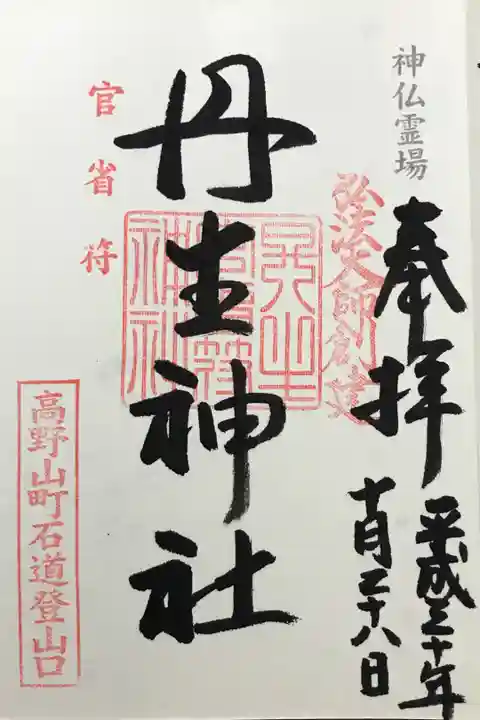 神仏霊場
奉拝
平成三十年
十月二十八日
弘法大師創建
丹生神社
官省符
丹生官省符神社
高野山町石道登山口